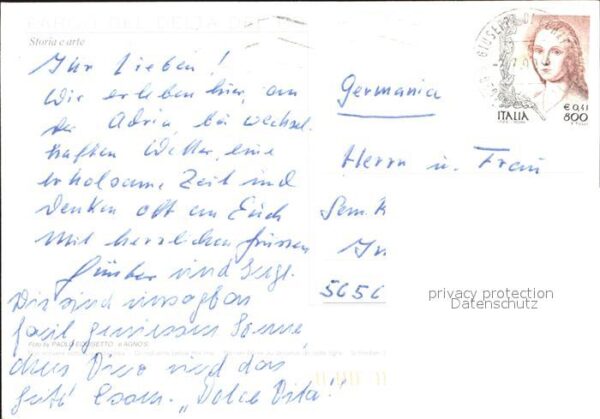 PARCO DEL DELTA DEL
Storia e arte
Ihr Lieben!
Wir erleben hier, an
der Adria, bei wechsel-
haften Wetter, eine
erholsame Zeit und
denken oft an Euch
Mit herzlichen Grüssen
Günter und Sigi.
Wir sind unsagbar
faul geniessen Sonne,
den Vino und das
gute Essen. „Dolce Vita"!
Germania
Herrn u. Frau
5656
ITALIA
€ 0,41
800
privacy protection
Datenschutz